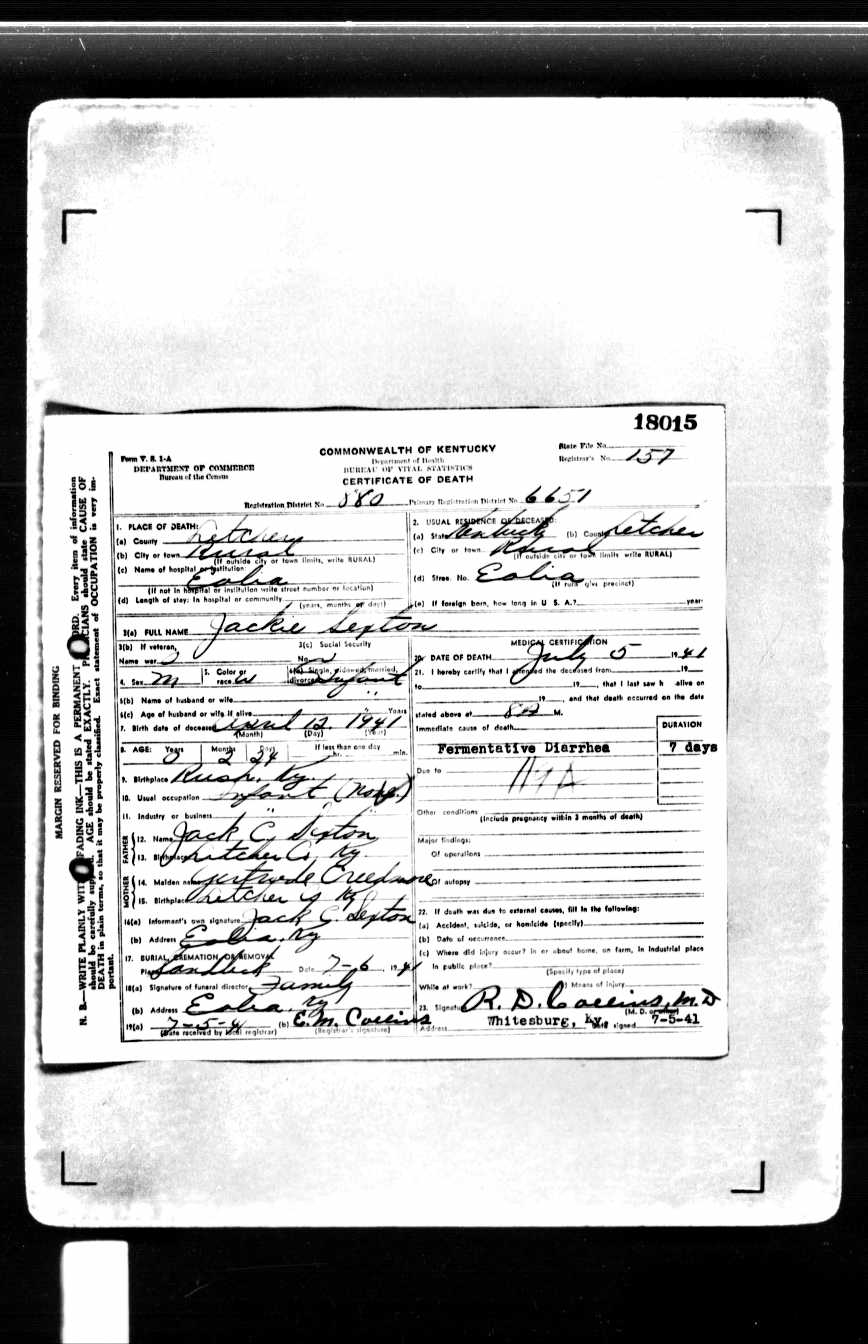 18015
State File No.
Form V. S. 1-A
COMMONWEALTH OF KENTUCKY
DEPARTMENT OF COMMERCE
Department of Health
Registrar's No. 157
Bureau of the Census
BUREAU OF VITAL STATISTICS
CERTIFICATE OF DEATH
Registration District No. 880 Primary Registration District No. 6651
MARGIN RESERVED FOR BINDING
N. B.—WRITE PLAINLY WITH FADING INK—THIS IS A PERMANENT RECORD. Every item of information
should be carefully supplied. AGE should be stated EXACTLY. PHYSICIANS should state CAUSE OF
DEATH in plain terms, so that it may be properly classified. Exact statement of OCCUPATION is very im-
portant.
1. PLACE OF DEATH:
(a) County Letcher
(b) City or town Rural
(If outside city or town limits, write RURAL)
(c) Name of hospital or institution:
Eolia
(If not in hospital or institution write street number or location)
(d) Length of stay: In hospital or community
(years, months or days)
2. USUAL RESIDENCE OF DECEASED:
(a) State Kentucky (b) County Letcher
(c) City or town Rural
(If outside city or town limits write RURAL)
(d) Street No. Eolia
(If rural give precinct)
(e) If foreign born, how long in U. S. A.? years
3(a) FULL NAME Jackie Sexton
3(b) If veteran,
Name war
3(c) Social Security
No.
4. Sex M
5. Color or
race W
6(a) Single, widowed, married,
divorced Infant
6(b) Name of husband or wife "
6(c) Age of husband or wife if alive Years
7. Birth date of deceased April 12 1941
(Month) (Day) (Year)
8. AGE: Years Months Days If less than one day
0 2 24 hr. min.
9. Birthplace Rush, Ky.
10. Usual occupation Infant (None)
11. Industry or business "
FATHER
12. Name Jack C. Sexton
13. Birthplace Letcher Co, Ky.
MOTHER
14. Maiden name Gertrude Creedmore
15. Birthplace Letcher Ky
16(a) Informant's own signature Jack C. Sexton
(b) Address Eolia, Ky
17. BURIAL, CREMATION OR REMOVAL
Place Sandlick Date 7-6 1941
18(a) Signature of funeral director Family
(b) Address Eolia, Ky
19(a) 7-5-41 (b) E. M. Collins
(Date received by local registrar) (Registrar's signature)
MEDICAL CERTIFICATION
20. DATE OF DEATH July 5 1941
21. I hereby certify that I attended the deceased from 19
to 19 , that I last saw h alive on
19 , and that death occurred on the date
stated above at 8A M.
Immediate cause of death
DURATION
Fermentative Diarrhea 7 days
Due to 119A
Other conditions
(Include pregnancy within 3 months of death)
Major findings:
Of operations
Of autopsy
22. If death was due to external causes, fill in the following:
(a) Accident, suicide, or homicide (specify)
(b) Date of occurrence
(c) Where did injury occur? In or about home, on farm, in industrial place
In public place?
(Specify type of place)
While at work? (e) Means of injury
23. Signature R. D. Collins, M.D
(M. D. or other)
Address Whitesburg, Ky. Date signed 7-5-41